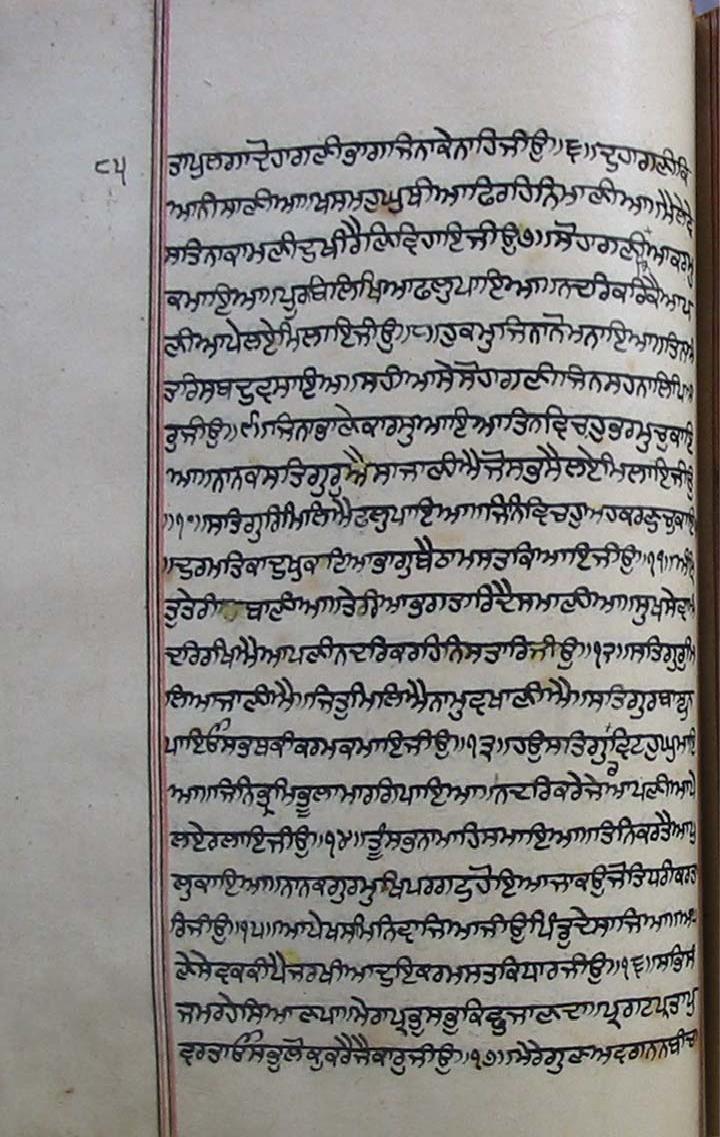 ੮੫
ਤਾਪੁਲਗਾਦੋਹਾਗਣੀਭਾਗਾਜਿਨਾਕੇਨਾਹਿਜੀਉ॥੬॥ਦੁਹਾਗਣੀਕਿ
ਆਨੀਸਾਣੀਆ॥ਖਸਮਹੁਘੁਥੀਆਫਿਰਹਿਨਿਮਾਣੀਆ॥ਮੈਲੇਵੇ
ਸਤਿਨਾਕਾਮਣੀਦੁਖੀਰੈਣਿਵਿਹਾਇਜੀਉ੭॥ਸੋਹਾਗਣੀਆਕਰਮੁ
ਕਮਾਇਆ॥ਪੂਰਬਿਲਿਖਿਆਫਲੁਪਾਇਆ॥ਨਦਰਿਕਰਿਕੈਆਪ
ਣੀਆਪੇਲਏਮਿਲਾਇਜੀਉ॥੮॥ਹੁਕਮੁਜਿਨਾਨੋਮਨਾਇਆ॥ਤਿਨਅੰ
ਤਰਿਸਬਦੁਵਸਾਇਆ॥ਸਹੀਆਸੇਸੋਹਾਗਣੀਜਿਨਸਹਨਾਲਿਪਿਆ
ਰੁਜੀਉ॥੯॥ਜਿਨਾਭਾਣੇਕਾਰਸੁਆਇਆਤਿਨਵਿਚਹੁਭਰਮੁਚੁਕਾਇ
ਆ॥ਨਾਨਕਸਤਿਗੁਰੁਐਸਾਜਾਣੀਐਜੋਸਭਸੈਲਏਮਿਲਾਇਜੀਉ
॥੧੦॥ਸਤਿਗੁਰਿਮਿਲਿਐਫਲੁਪਾਇਆ॥ਜਿਨਿਵਿਚਹੁਅਹਕਰਣੁਚੁਕਾਇ
॥ਦੁਰਮਤਿਕਾਦੁਖੁਕਟਿਆਭਾਗੁਬੈਠਾਮਸਤਕਿਆਇਜੀਉ॥੧੧॥ਅੰਮ੍ਰਿ
ਤੁਤੇਰੀਬਾਣੀਆ॥ਤੇਰਿਆਭਗਤਾਰਿਦੈਸਮਾਣੀਆ॥ਸੁਖਸੇਵਾਅੰ
ਦਰਿਰਖਿਐਆਪਣੀਨਦਰਿਕਰਹਿਨਿਸਤਾਰਿਜੀਉ॥੧੨॥ਸਤਿਗੁਰੁਮਿ
ਲਿਆਜਾਣੀਐ॥ਜਿਤੁਮਿਲਿਐਨਾਮੁਵਖਾਣੀਐ॥ਸਤਿਗੁਰਬਾਝੁਨ
ਪਾਇਓਸਭਥਕੀਕਰਮਕਮਾਇਜੀਉ॥੧੩॥ਹਉਸਤਿਗੁਰਵਿਟਹੁਘੁਮਾਇ
ਆ॥ਜਿਨਿਭ੍ਰਮਿਭੂਲਾਮਾਰਗਿਪਾਇਆ॥ਨਦਰਿਕਰੇਜੇਆਪਣੀਆਪੇ
ਲਏਰਲਾਇਜੀਉ॥੧੪॥ਤੂੰਸਭਨਾਮਾਹਿਸਮਾਇਆ॥ਤਿਨਿਕਰਤੈਆਪੁ
ਲੁਕਾਇਆ॥ਨਾਨਕਗੁਰਮੁਖਿਪਰਗਟੁਹੋਇਆਜਾਕਉਜੋਤਿਧਰੀਕਰਤਾ
ਰਿਜੀਉ॥੧੫॥ਆਪੇਖਸਮਿਨਿਵਾਜਿਆਜੀਉਪਿੰਡੁਦੇਸਾਜਿਆ॥ਆਪ
ਣੇਸੇਵਕਕੀਪੈਜਰਖੀਆਦੁਇਕਰਮਸਤਕਿਧਾਰਜੀਉ॥੧੬॥ਸਭਿਸੰ
ਜਮਰਹੇਸਿਆਣਪਾ॥ਮੇਰਾਪ੍ਰਭੁਸਭੁਕਿਛੁਜਾਣਦਾ॥ਪ੍ਰਗਟਪ੍ਰਤਾਪੁ
ਵਰਤਾਇਓਸਭੁਲੋਕੁਕਰੈਜੈਕਾਰੁਜੀਉ॥੧੭॥ਮੇਰੇਗੁਣਅਵਗਨਨਬੀਚਾ